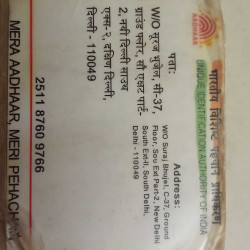 भारतीय विशिष्ट पहचान प्राधिकरण
UNIQUE IDENTIFICATION AUTHORITY OF INDIA
पता:
W/O सूरज भुजेल, सी-37,
ग्राउंड फ्लोर, सौ एक्षट पार्ट-
2, नयी दिल्ली साउथ
एक्स-२, दक्षिण दिल्ली,
दिल्ली - 110049
Address:
W/O Suraj Bhujel, C-37, Ground
Floor, Sou Ext Part-2, New Delhi
South Ext-II, South Delhi,
Delhi - 110049
2511 8760 9766
MERA AADHAAR, MERI PEHACHAN